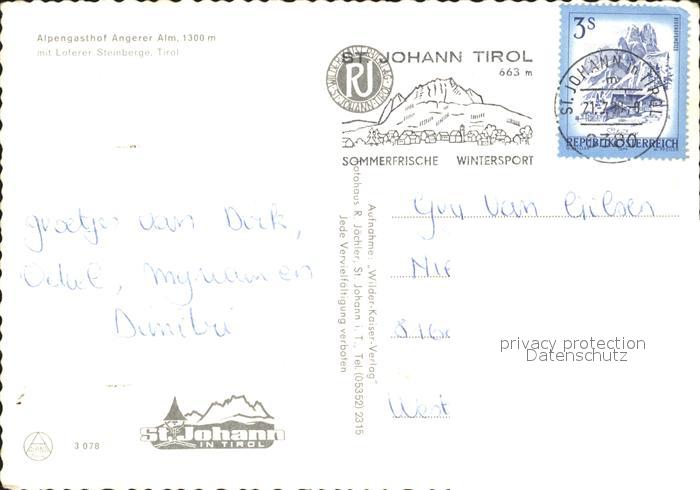 Alpengasthof Angerer Alm, 1300 m
mit Loferer Steinberge, Tirol
ST. JOHANN TIROL
663 m
WILDER-KAISER-VERLAG
ST. JOHANN-TIROL
RJ
SOMMERFRISCHE WINTERSPORT
3 S
REPUBLIK ÖSTERREICH
ST. JOHANN in TIROL
6380
groetjes van Dirk,
Dimitri
Guy Van Gilsen
Nie
816
West
privacy protection
Datenschutz
Aufnahme: „Wilder-Kaiser-Verlag"
Fotohaus R. Jöchler, St. Johann i. T., Tel. (05352) 2315
Jede Vervielfältigung verboten
St. Johann
IN TIROL
3 078